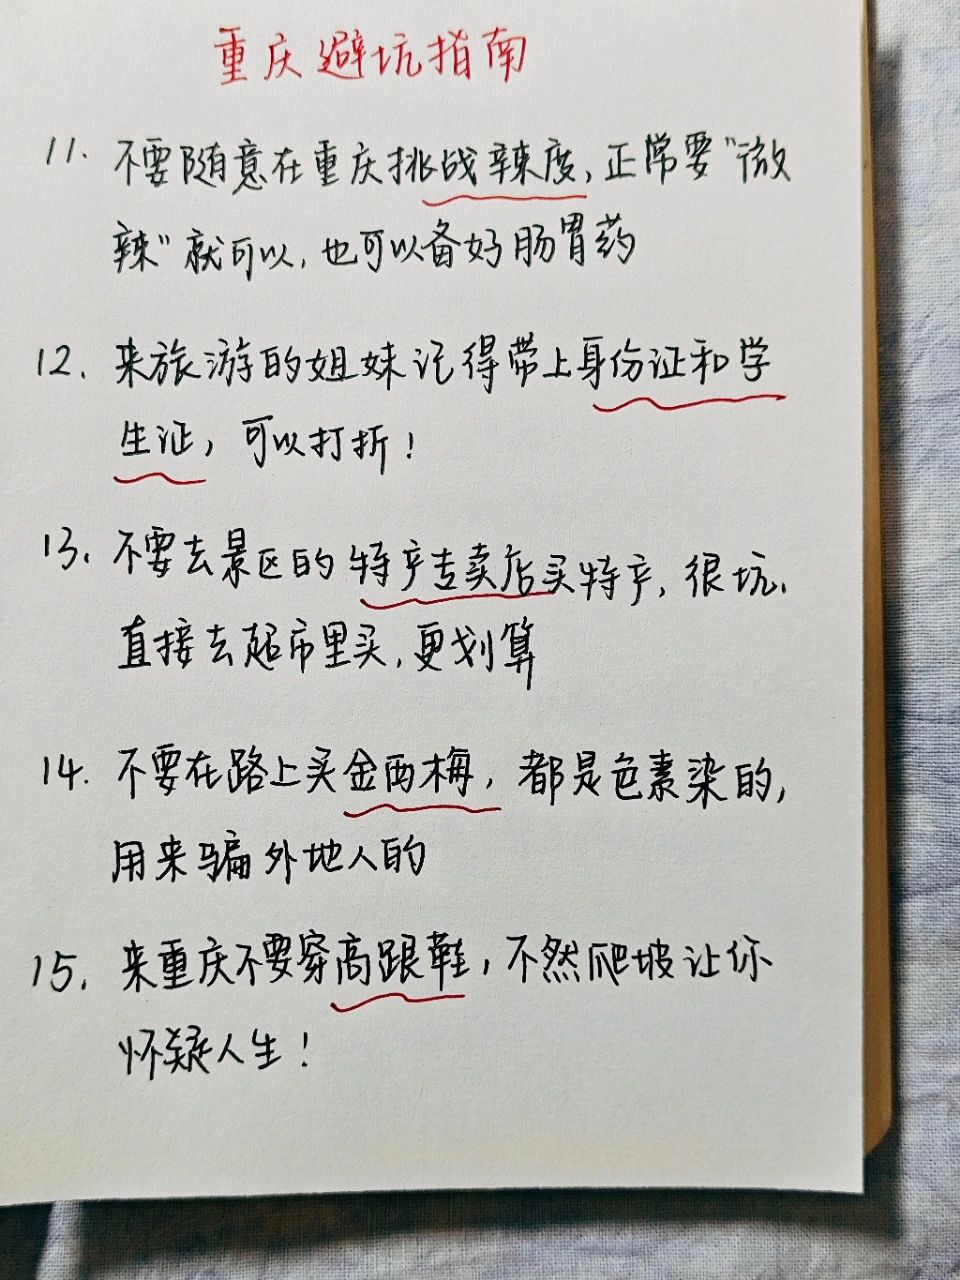 重庆避坑指南
11. 不要随意在重庆挑战辣度,正常要"微
辣"就可以,也可以备好肠胃药
12. 来旅游的姐妹记得带上身份证和学
生证,可以打折!
13. 不要去景区的特产专卖店买特产,很坑、
直接去超市里买,更划算
14. 不要在路上买金西梅,都是色素染的,
用来骗外地人的
15. 来重庆不要穿高跟鞋,不然爬坡让你
怀疑人生!